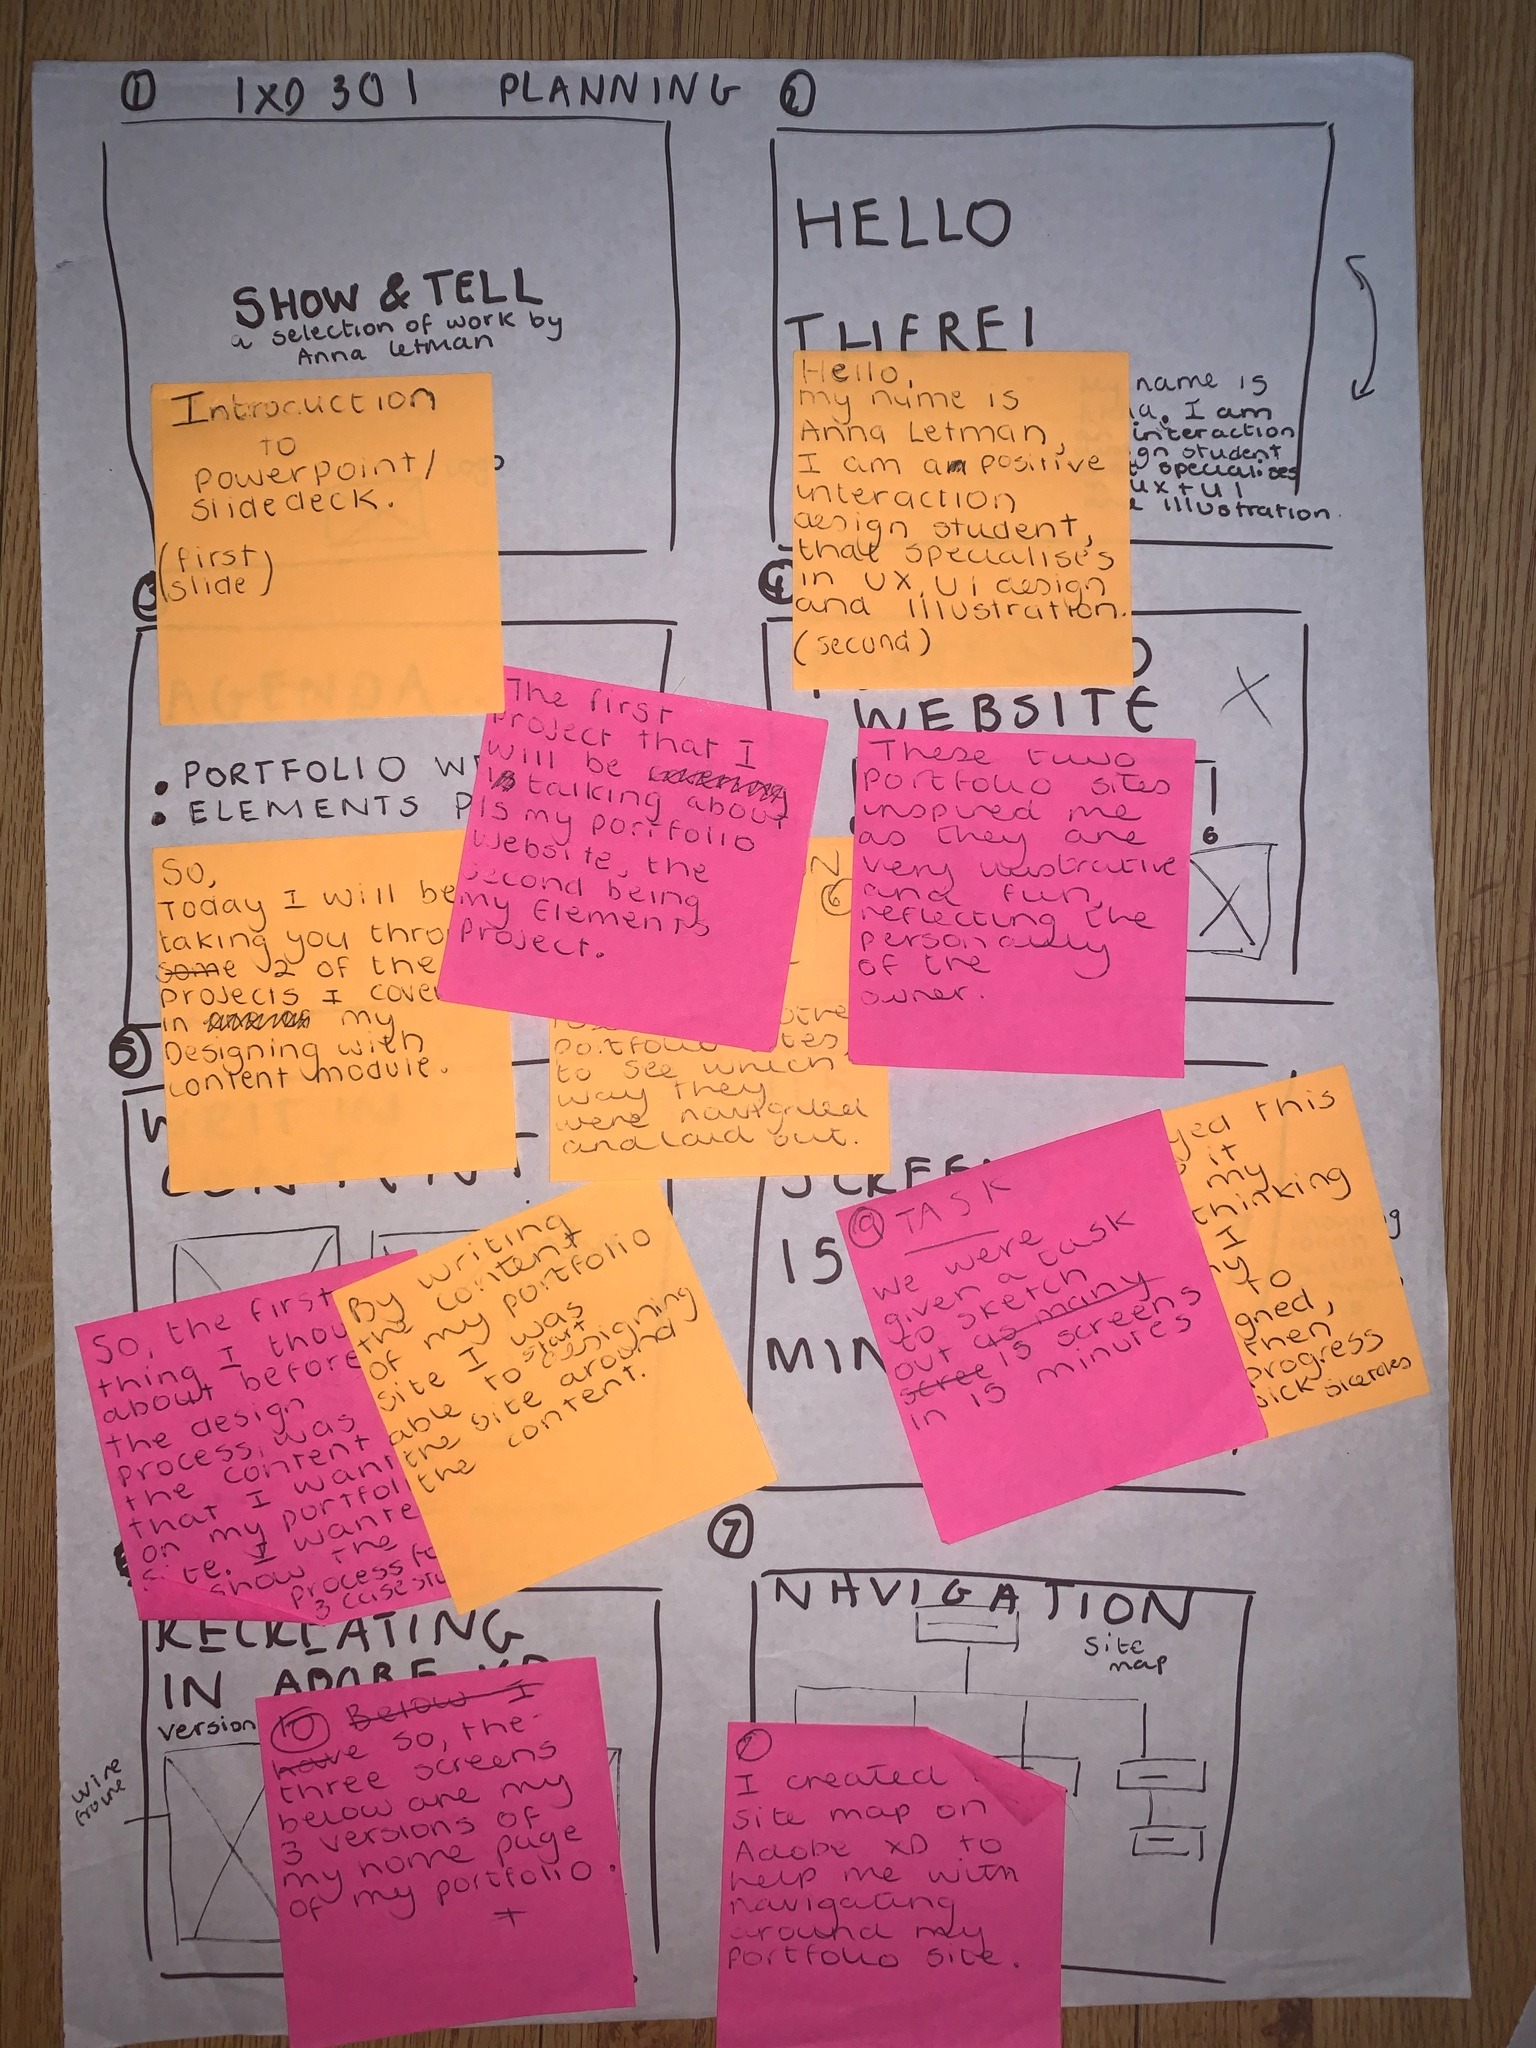 ① IXD301 PLANNING ②
SHOW & TELL
a selection of work by
Anna Letman
Introduction
to
powerpoint/
slidedeck.
(first
slide)
HELLO
THERE!
name is
I am
interaction
student
specialises
UX + UI
illustration.
Hello,
my name is
Anna Letman,
I am a positive
interaction
design student,
that specialises
in UX, UI design
and illustration.
(second)
③
AGENDA
• PORTFOLIO
• ELEMENTS
So,
Today I will be
taking you
some 2 of the
projects I
in my
Designing with
content module.
The first
project that I
will be covering
talking about
is my portfolio
website, the
second being
my Elements
Project.
④
WEBSITE
6
These two
portfolio sites
inspired me
as they are
very illustrative
and fun,
reflecting the
personality
of the
owner.
⑥
portfolio sites
to see which
way they
were navigated
and laid out.
⑤
So, the first
thing I
about before
the design
process, was
the content
that I
on my
site. I
show the
process
3 case
By writing
the content
of my portfolio
site I was
able to start designing
the site around
the content.
SCREEN
15
⑨ TASK
We were
given a task
to sketch
out as many
scree 15 screens
in 15 minutes
this
it
my
thinking
I
to
then
progress
sketches
RECREATING
IN ADOBE XD
version
wire
frame
⑩ Below I
have So, the
three screens
below are my
3 versions of
my home page
of my portfolio.
+
⑦
NAVIGATION
site
map
I created
site map on
Adobe XD to
help me with
navigating
around my
portfolio site.